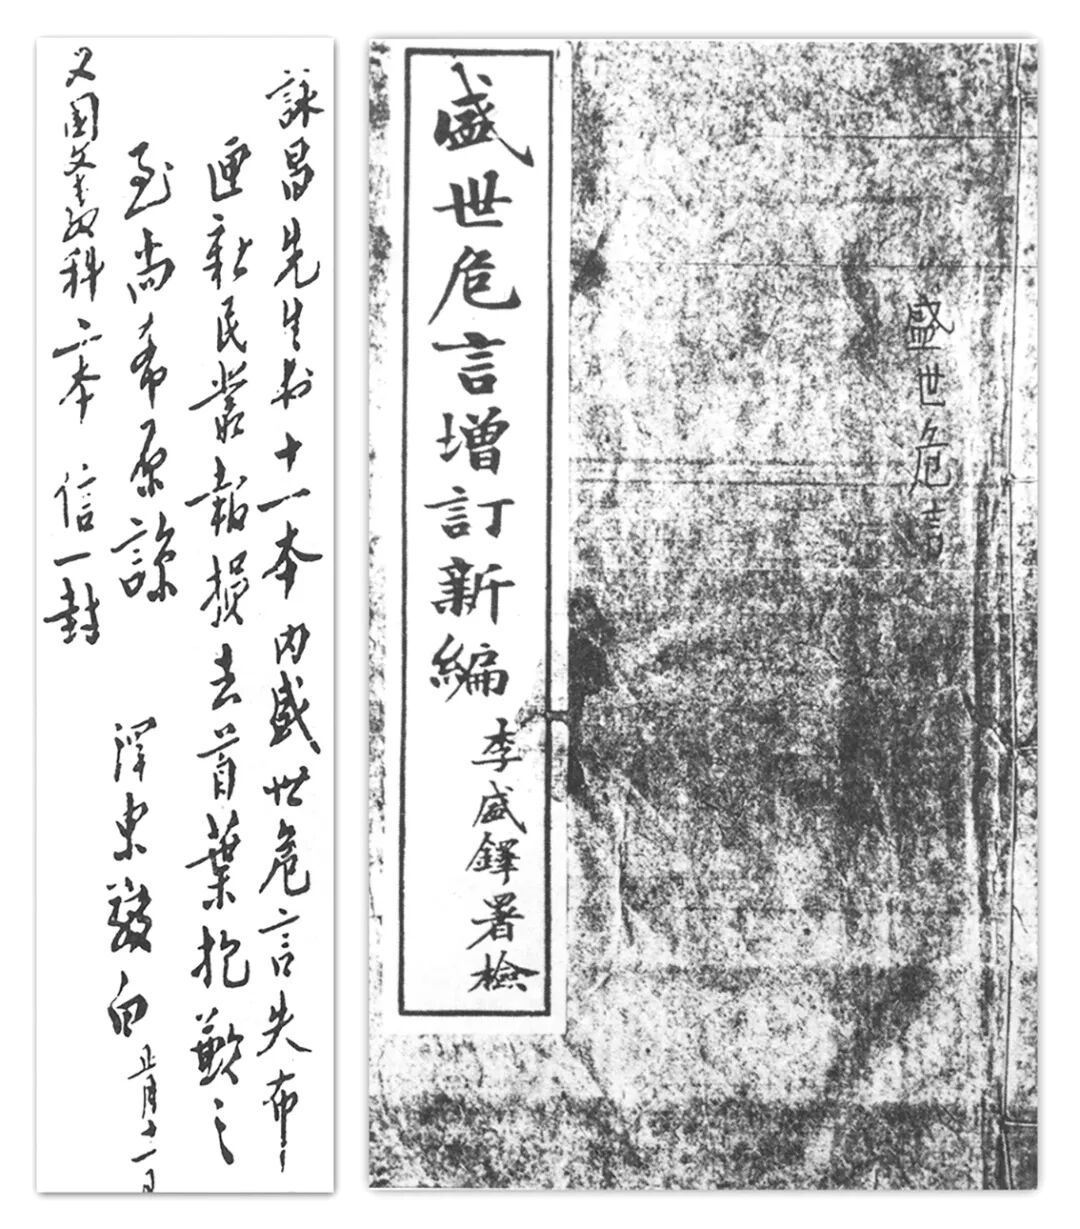 詠昌先生书十一本 内盛世危言失布
匣新民叢報損去首葉抱歉之
至尚希原諒
澤東敬白 正月十一日
又國文教科二本 信一封
盛世危言
盛世危言增訂新編
李盛鐸署檢